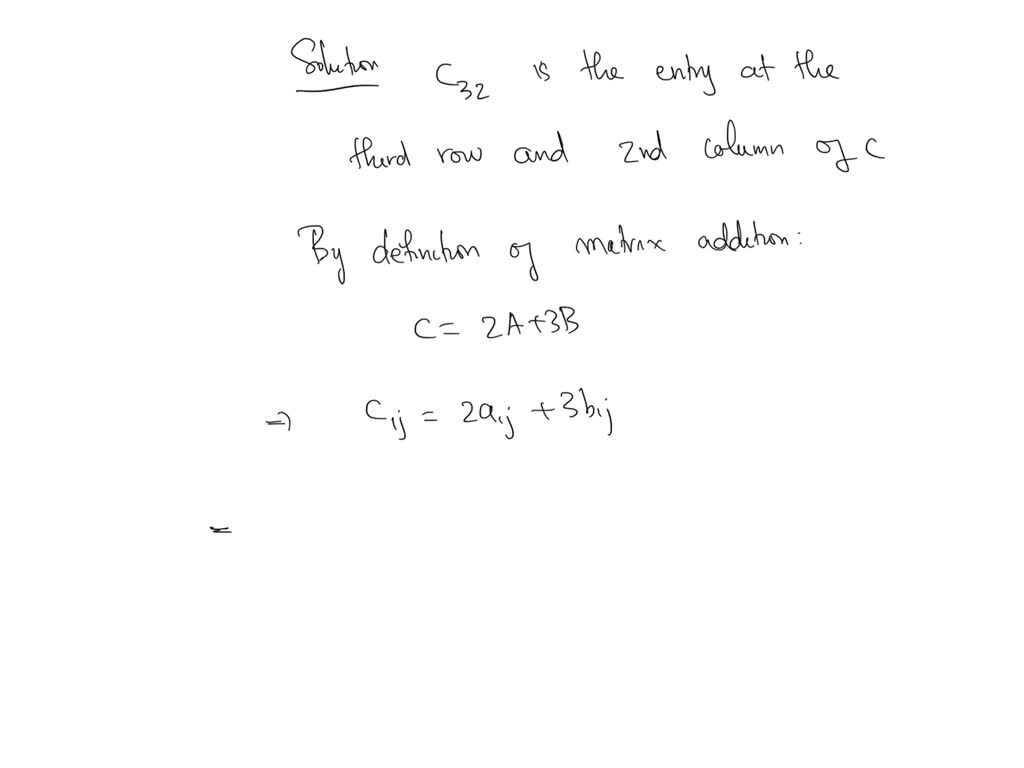 Solution C₃₂ is the entry at the
third row and 2nd column of C
By definition of matrix addition:
C = 2A+3B
⇒ Cᵢⱼ = 2aᵢⱼ + 3bᵢⱼ
=